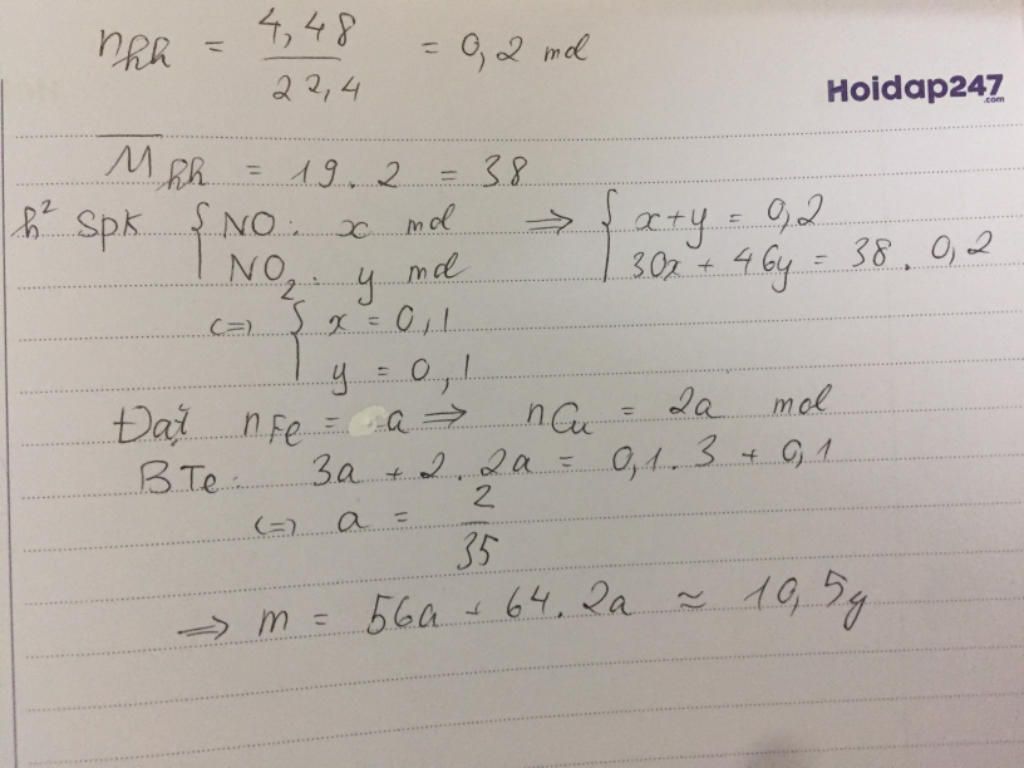 nhh = 4,48 / 22,4 = 0,2 mol
Hoidap247
.com
M̅hh = 19 . 2 = 38
h² spk { NO : x mol ⇒ { x + y = 0,2
NO₂ : y mol 30x + 46y = 38 . 0,2
<=> { x = 0,1
y = 0,1
Đặt nFe = a ⇒ nCu = 2a mol
BTe : 3a + 2 . 2a = 0,1 . 3 + 0,1
<=> a = 2 / 35
⇒ m = 56a + 64 . 2a ≈ 10,5g